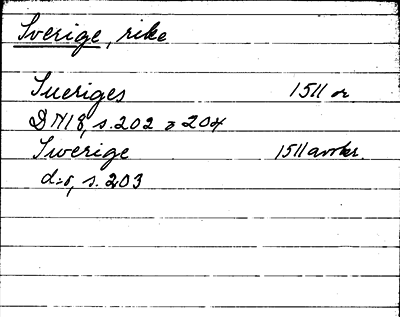 Sverige, rike
Sueriges 1511 or
DN18, s. 202 o 204
Swerige 1511 avskr.
d:o, s. 203